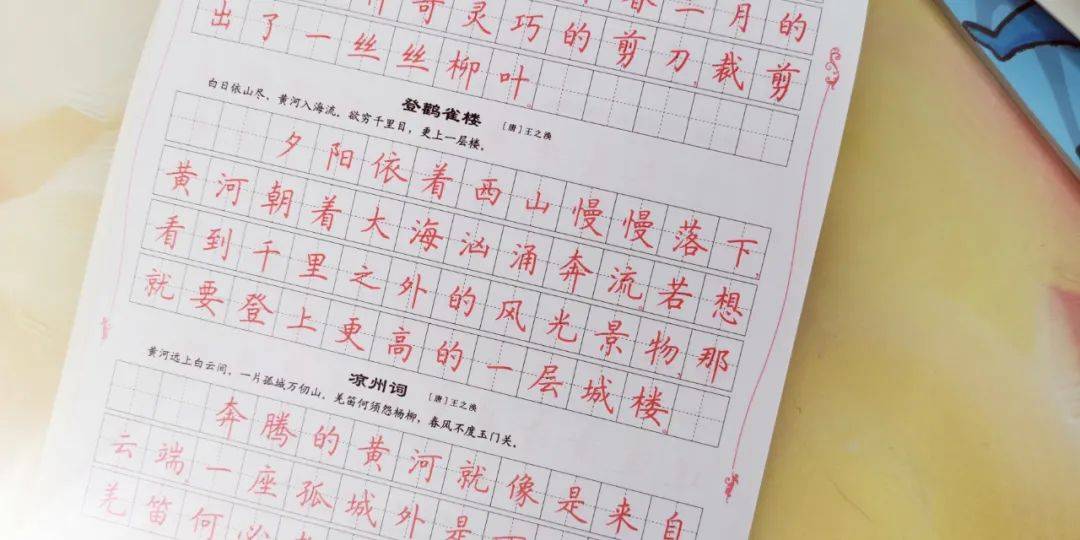 春一月的
奇灵巧的剪刀裁剪
出了一丝丝柳叶。
登鹳雀楼 [唐]王之涣
白日依山尽，黄河入海流，欲穷千里目，更上一层楼。
夕阳依着西山慢慢落下，
黄河朝着大海汹涌奔流。若想
看到千里之外的风光景物，那
就要登上更高的一层城楼。
凉州词 [唐]王之涣
黄河远上白云间，一片孤城万仞山，羌笛何须怨杨柳，春风不度玉门关。
奔腾的黄河就像是来自
云端，一座孤城外是
羌笛何必